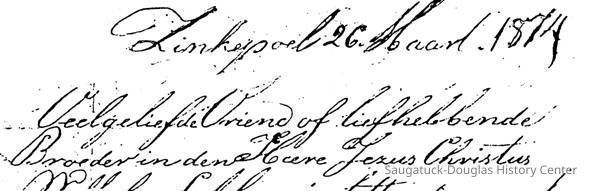 Zinkepoel 26. Maart. 1874
Veelgeliefde Vriend of liefhebbende
Broeder in den Heere Jezus Christus
Saugatuck-Douglas History Center